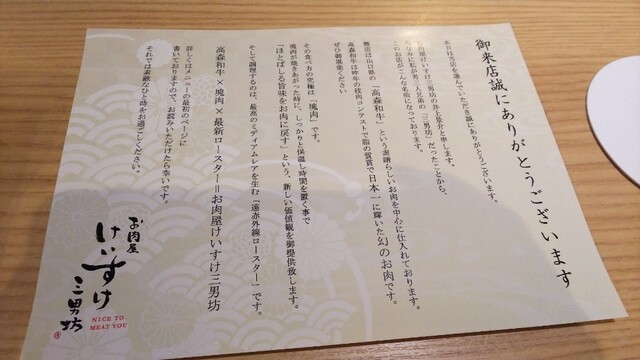 御来店誠にありがとうございます
本日は当店を選んでいただき誠にありがとうございます。
お肉屋けいすけ三男坊の井上景介と申します。
ちなみに私が男三人兄弟の「三男坊」だったことから、
このお店がこんな名前になっております。
当店は山口県の「高森和牛」という素晴らしいお肉を中心に仕入れております。
高森和牛は昨年の枝肉コンテストで脂の質賞で日本一に輝いた幻のお肉です。
ぜひ御堪能ください
その食べ方の究極は「塊肉」です。
塊肉が焼きあがった時に、しっかりと保温し時間を置く事で
「ほとばしる旨味をお肉に戻す」という、新しい価値観を御提供致します。
そして調理するのは、最高のミディアムレアを生む「遠赤外線ロースター」です。
高森和牛×塊肉×最新ロースター＝お肉屋けいすけ三男坊
詳しくはメニューの最初のページに
書いておりますので、お読みいただけたら幸いです。
それでは素敵なひと時をお過ごしください。
お肉屋
けいすけ
三男坊
NICE TO
MEAT YOU